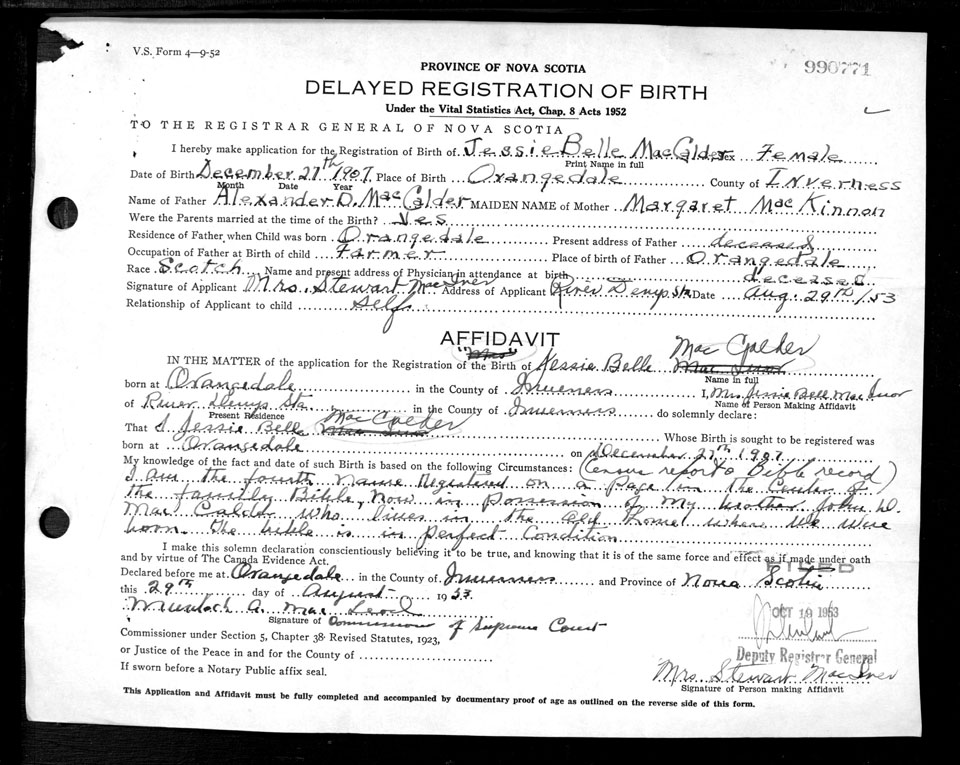 V.S. Form 4—9-52
990771
PROVINCE OF NOVA SCOTIA
DELAYED REGISTRATION OF BIRTH
Under the Vital Statistics Act, Chap. 8 Acts 1952
TO THE REGISTRAR GENERAL OF NOVA SCOTIA
I hereby make application for the Registration of Birth of Jessie Belle MacCalder Sex Female
Print Name in full
Date of Birth December 27th 1907 Place of Birth Orangedale County of Inverness
Month Date Year
Name of Father Alexander D. MacCalder MAIDEN NAME of Mother Margaret MacKinnon
Were the Parents married at the time of the Birth? Yes
Residence of Father when Child was born Orangedale Present address of Father deceased
Occupation of Father at Birth of child Farmer Place of birth of Father Orangedale
Race Scotch Name and present address of Physician in attendance at birth deceased
Signature of Applicant Mrs. Stewart MacIver Address of Applicant River Denys Sta Date Aug. 29th/53
Relationship of Applicant to child Self
AFFIDAVIT
"Mrs"
IN THE MATTER of the application for the Registration of the Birth of Jessie Belle MacCalder
Name in full
born at Orangedale in the County of Inverness I, Mrs Jessie Bell MacIvor
Name of Person Making Affidavit
of River Denys Sta. in the County of Inverness do solemnly declare:
Present Residence
That I Jessie Bell MacCalder Whose Birth is sought to be registered was
born at Orangedale on December 27th 1907
My knowledge of the fact and date of such Birth is based on the following Circumstances: (Census report or Bible record)
I am the fourth name registered on a page in the Center of
the family Bible, now in possession of my brother John D.
MacCalder who lives in the old home where we were
born. The bible is in perfect condition
I make this solemn declaration conscientiously believing it to be true, and knowing that it is of the same force and effect as if made under oath
and by virtue of The Canada Evidence Act.
Declared before me at Orangedale in the County of Inverness and Province of Nova Scotia
this 29th day of August 1953
OCT 19 1953
Murdoch A. MacLeod
Signature of Commissioner of Supreme Court
Commissioner under Section 5, Chapter 38 Revised Statutes, 1923,
or Justice of the Peace in and for the County of
Deputy Registrar General
If sworn before a Notary Public affix seal.
Mrs. Stewart MacIver
Signature of Person making Affidavit
This Application and Affidavit must be fully completed and accompanied by documentary proof of age as outlined on the reverse side of this form.